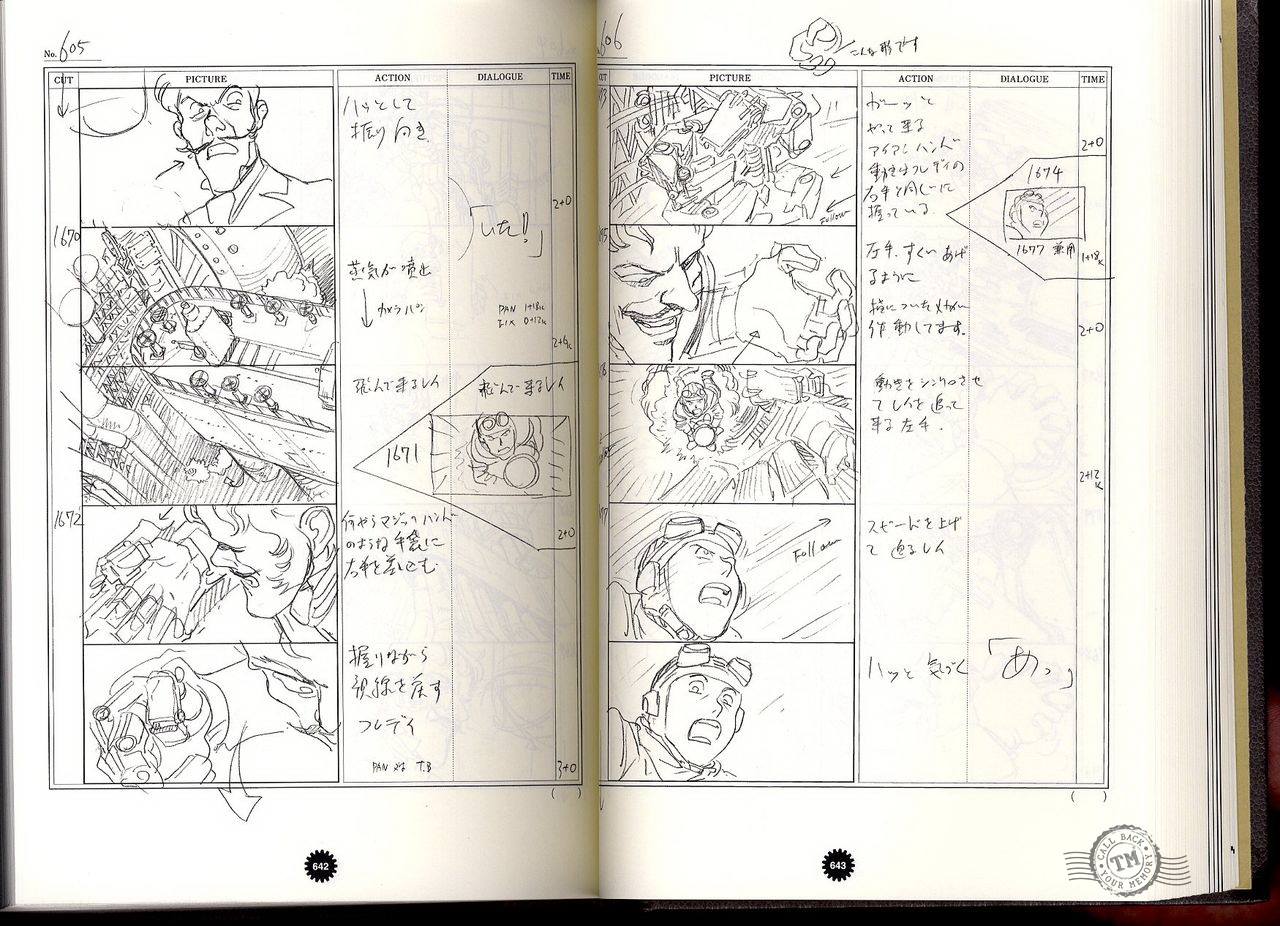 No. 605
CUT PICTURE ACTION DIALOGUE TIME
ハッとして
振り向き
「いた!!」
2+0
1670
蒸気が噴出
カメラパン
PAN 1+18K
FIX 0+12K
2+6K
飛んで来るレイ
飛んで来るレイ
1671
2+0
1672
何やらマジックハンド
のような手袋に
右手を差し込む
握りながら
視線を戻す
フレディ
PAN T.B
3+0
( )
642
606
こんな形です
PICTURE ACTION DIALOGUE TIME
ガーッと
やって来る
アイアンハンド
動きはフレディの
右手と同じに
握っている
2+0
Follow
1674
1677 兼用
1+18K
左手、すくいあげ
るように
作動してます。
2+0
動きをシンクロさせ
てレイを追って
来る左手.
2+12K
Follow
スピードを上げ
て迫るレイ
ハッと気づく
「あっ」
( )
643
CALL BACK
TM
YOUR MEMORY